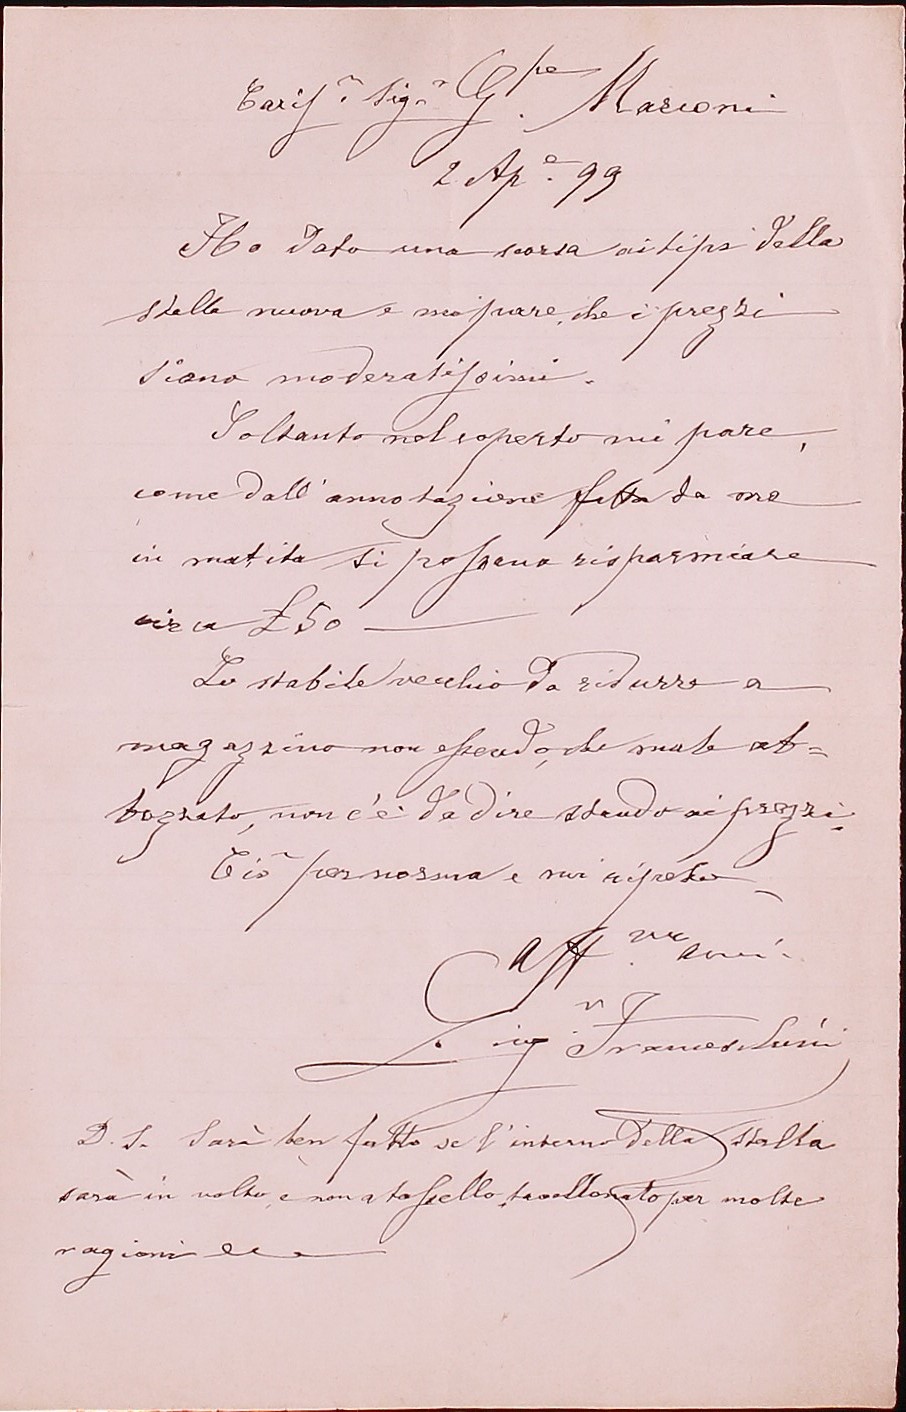 Caris.º Sig.r G.pe Marconi
2 Ap.e 99
Ho dato una scorsa ai tipi della
stalla nuova e mi pare, che i prezzi
siano moderatissimi.
Soltanto nel coperto mi pare,
come dall'annotazione fatta da me
in matita si possano risparmiare
circa £ 50
Lo stabile vecchio da ridurre a
magazzino non essendo, che male ab=
bozzato, non c'è da dire stando ai prezzi.
Ciò per norma e mi ripeto
Aff.mo ami.
Luig. Franceschini
D. S. Sarà ben fatto se l'interno della stalla
sarà in volto, e non a tassello, per molte
ragioni